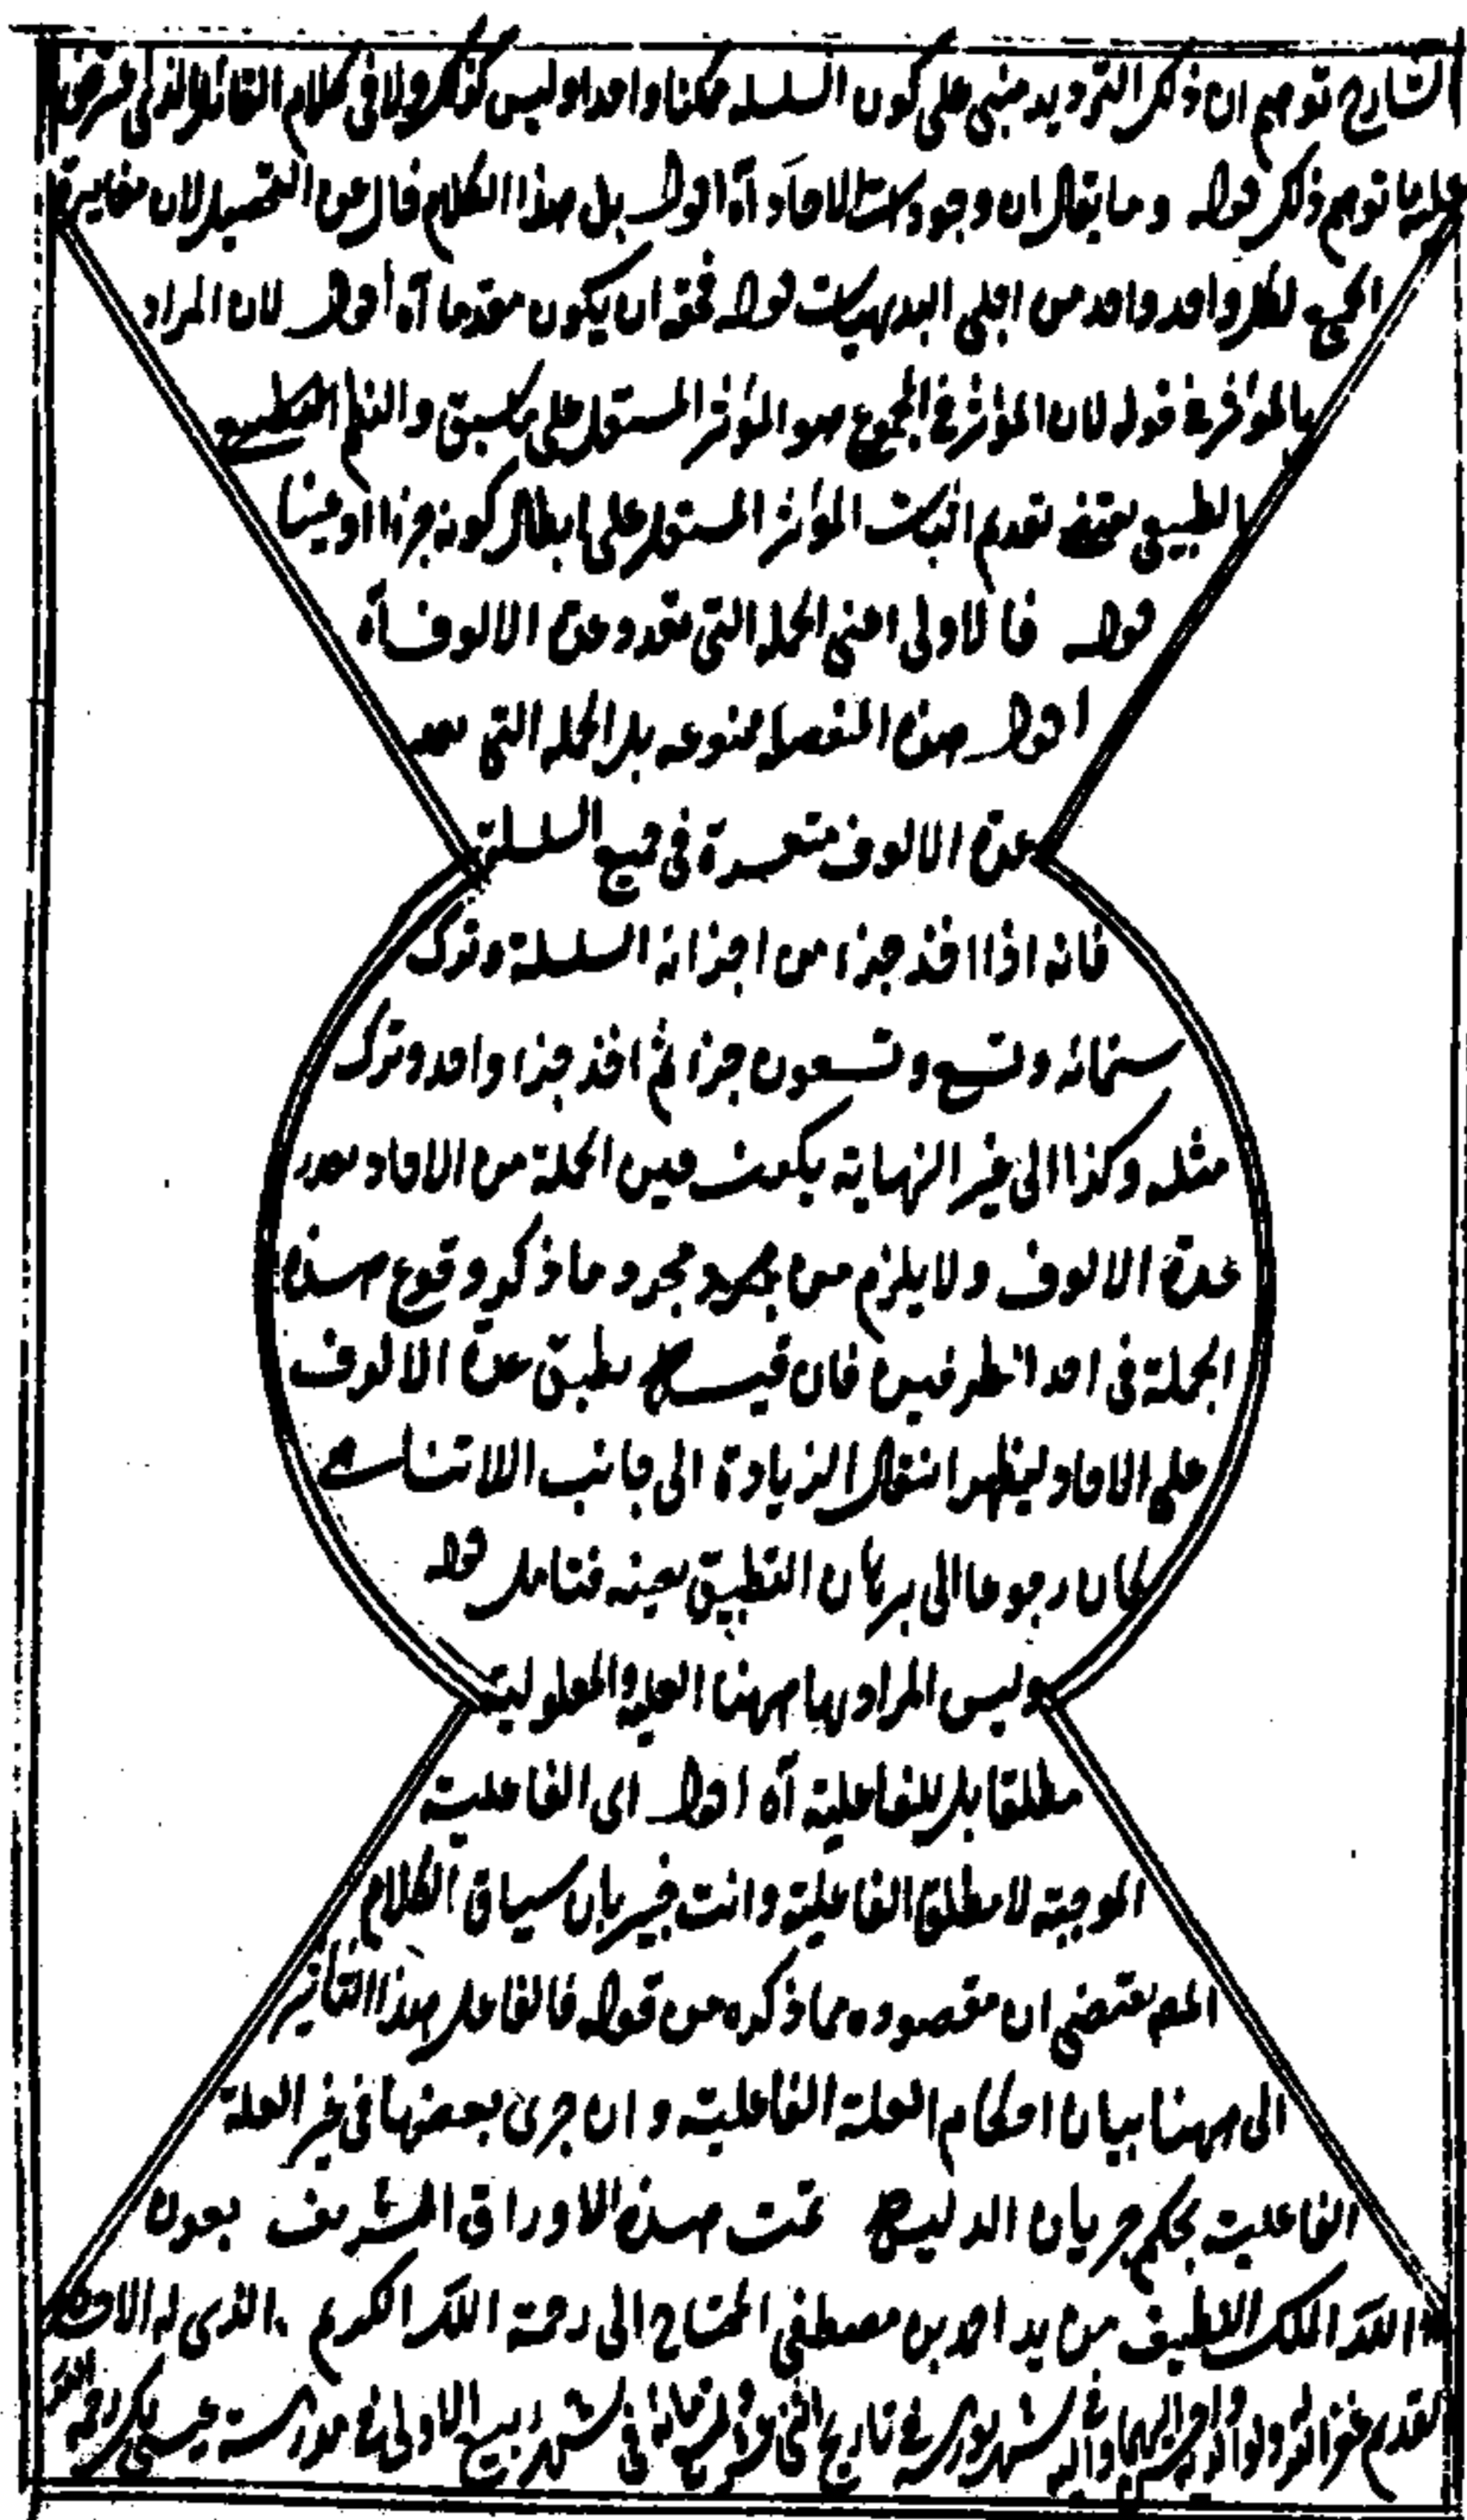 الشارح توهم ان ذلك الترديد مبنى على كون السلسلة ممكنا واحدا وليس كذلك ولا فى كلام القائل الذى
عليه ما توهم ذلك قوله وما يقال ان وجودات الآحاد آه اقول بل هذا الكلام خال عن التحصيل لان مغايرة
الجميع لكل واحد واحد من اجلى البديهيات قوله فحقه ان يكون مقدما آه اقول لان المراد
بالمؤثر فى قوله لان المؤثر فى المجموع هو المؤثر المستقل على ما سبق والنظم
الطبيعى يقتضى تقدم اثبات المؤثر المستقل على ابطال كونه جزءا او عينا
قوله فالاولى اعنى الجملة التى بعدد عدة الالوف آه
اقول هذه المنفصلة ممنوعة بل الجملة التى بعدد
عدة الالوف متعددة فى جميع السلسلة
فانه اذا اخذ جزء من اجزاء السلسلة وترك
تسعمائة وتسع وتسعون جزء ثم اخذ جزء واحد وترك
مثله وكذا الى غير النهاية يكون عين الجملة من الآحاد بعدد
عدة الالوف ولا يلزم من مجرد ما ذكر وقوع هذه
الجملة فى احد الطرفين فان قيل نطبق عدة الالوف
على الآحاد ليظهر انتقال الزيادة الى جانب اللاتناهى
كان رجوعا الى برهان التطبيق بعينه فتامل قوله
وليس المراد بها ههنا العلية والمعلولية
مطلقا بل الفاعلية آه اقول اى الفاعلية
الموجبة لا مطلق الفاعلية وانت خبير بان سياق الكلام
المص يقتضى ان مقصوده مما ذكره من قوله فالفاعل هذا التاثير
الى ههنا بيان احكام العلة الفاعلية وان جرى بعضها فى غير العلة
الفاعلية بحكم جريان الدليل تمت هذه الاوراق الشريف بعون
الله الملك اللطيف من يد احمد بن مصطفى المحتاج الى رحمة الله الكريم الذى له
القدم غفر الله له ولوالديه فى شهر فى تاريخ فى شهر ربيع الاول فى مدرسة